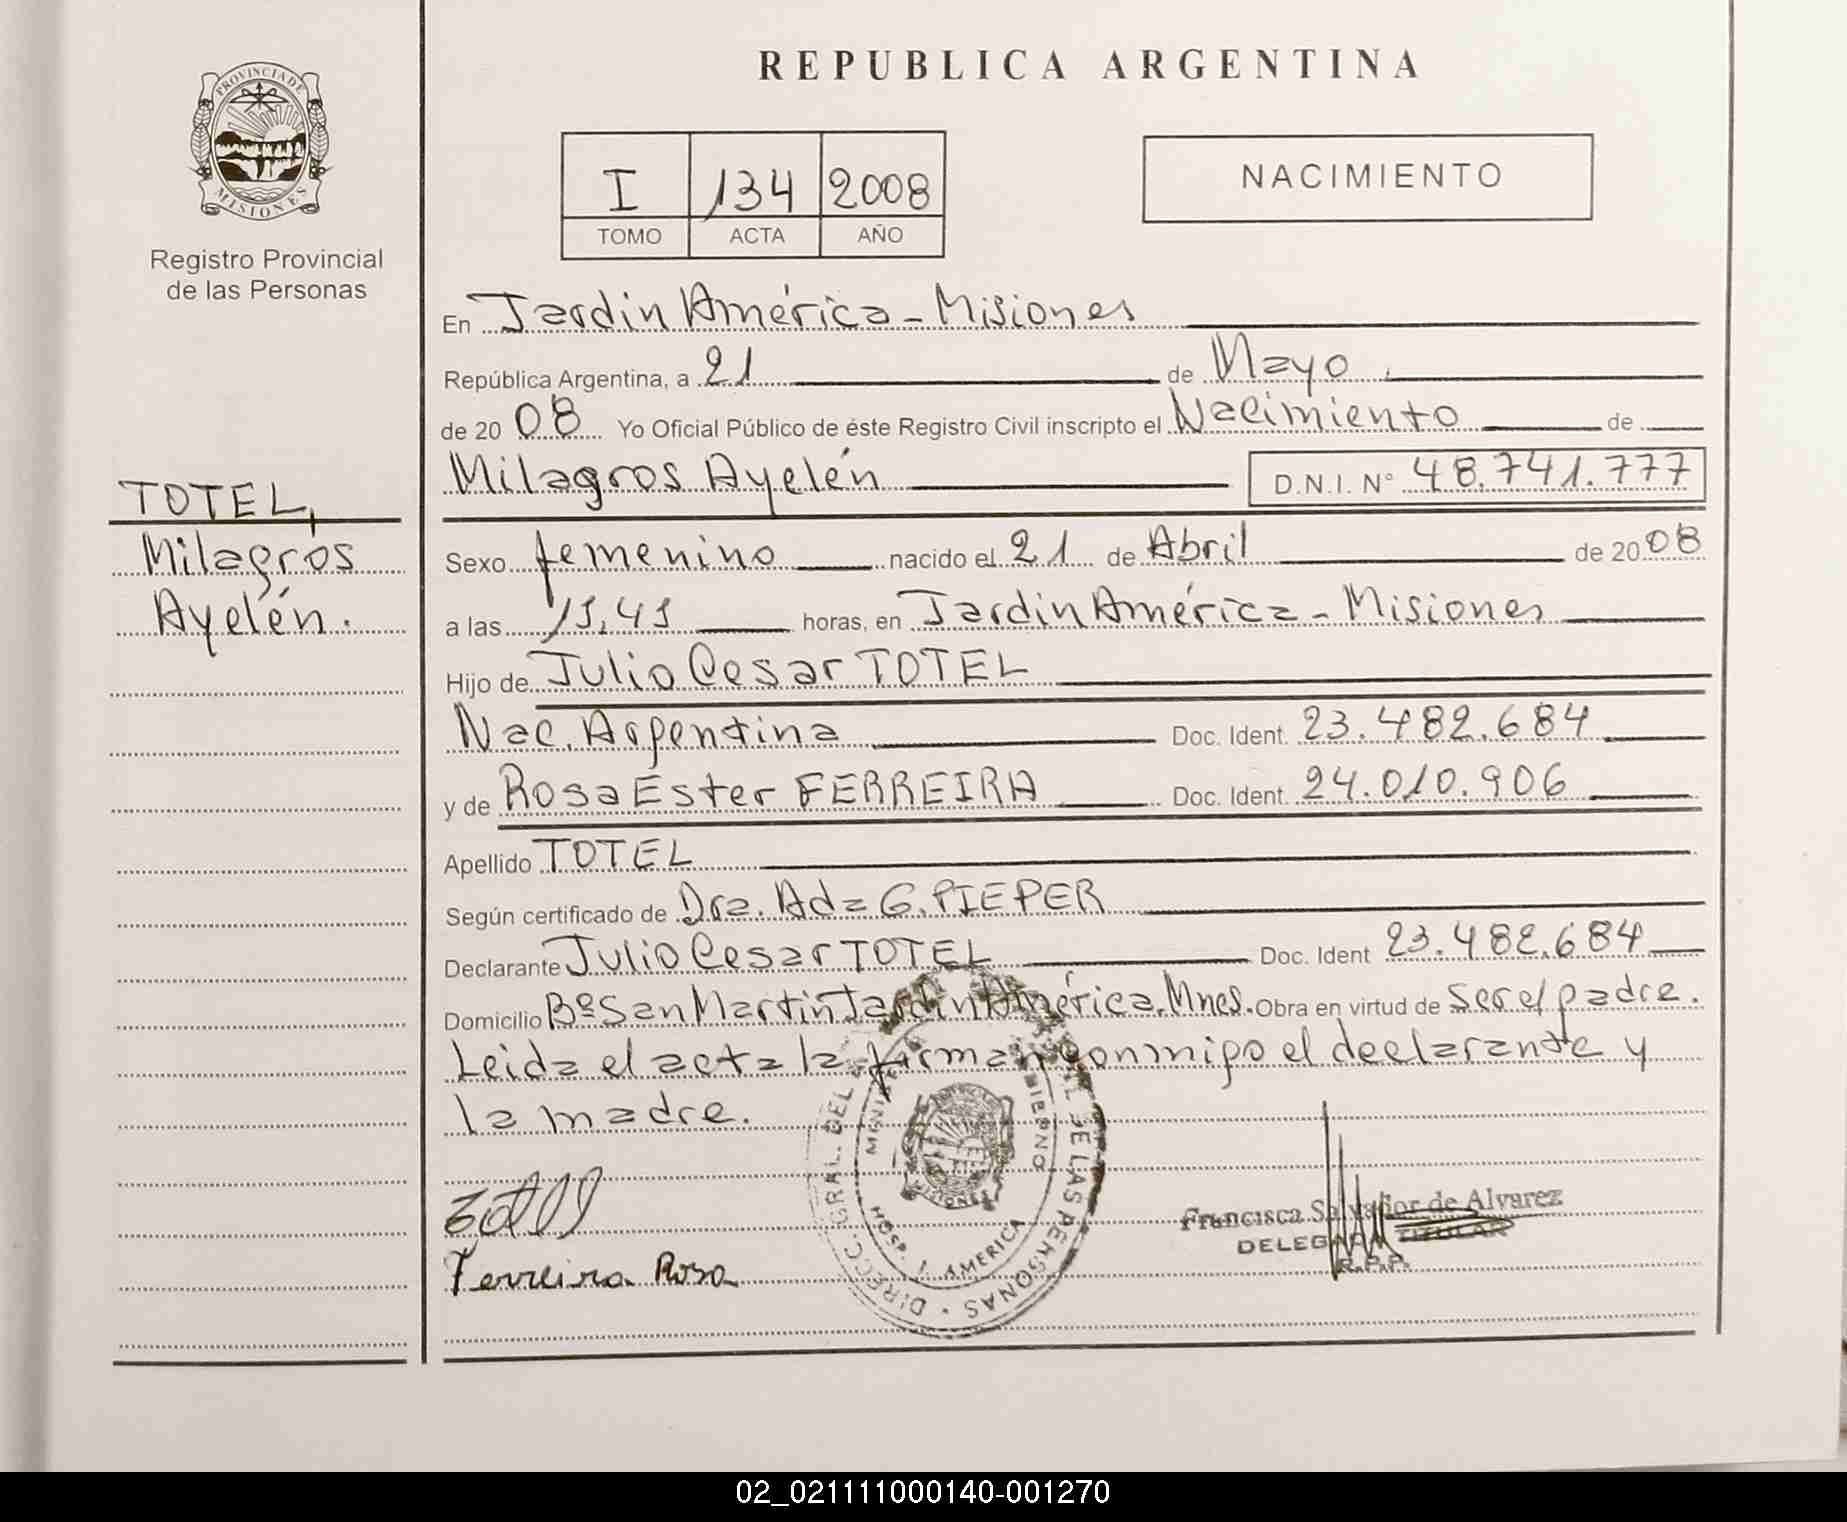 REPUBLICA ARGENTINA
PROVINCIA DE
MISIONES
Registro Provincial
de las Personas
I 134 2008
TOMO ACTA AÑO
NACIMIENTO
TOTEL,
Milagros
Ayelén.
En Jardin América - Misiones
República Argentina, a 21 de Mayo
de 2008 Yo Oficial Público de éste Registro Civil inscripto el Nacimiento de
Milagros Ayelén D.N.I. Nº 48.741.777
Sexo femenino nacido el 21 de Abril de 2008
a las horas, en Jardin América - Misiones
Hijo de Julio Cesar TOTEL
Nac. Argentina Doc. Ident. 23.482.684
y de Rosa Ester FERREIRA Doc. Ident. 24.010.906
Apellido TOTEL
Según certificado de Dra. Ada G. PIEPER
Declarante Julio Cesar TOTEL Doc. Ident 23.482.684
Domicilio Bº San Martin Jardin América. Mnes. Obra en virtud de ser el padre.
Leida el acta la firman conmigo el declarante y
la madre.
Ferreira Rosa
DIRECC. GRAL. DEL DE LAS PERSONAS
HOSP. J. AMERICA
Francisca Salvador de Alvarez
DELEGADA TITULAR
R.P.P.
02_021111000140-001270